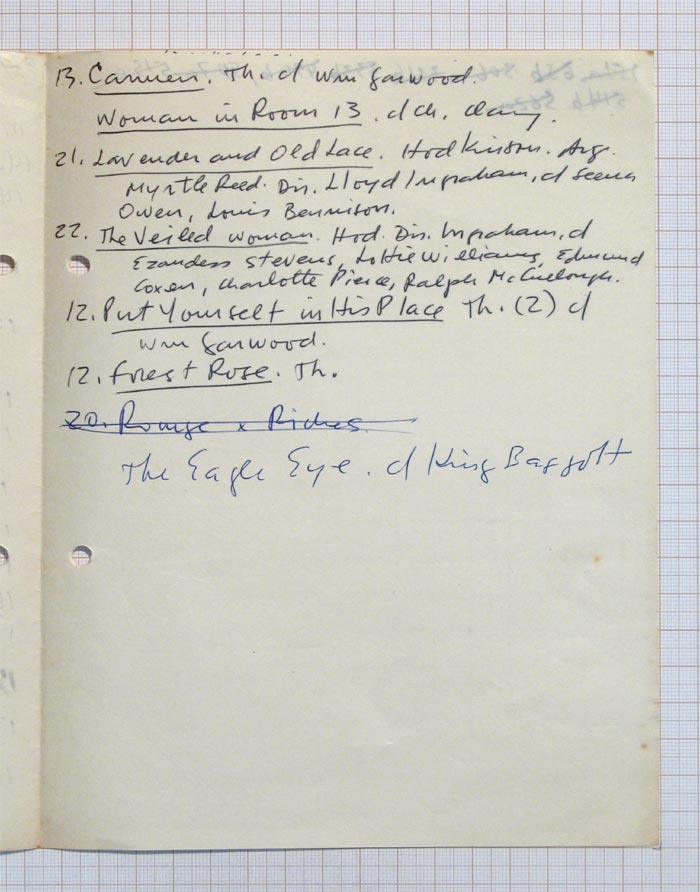 13. Carmen. Th. d Wm Garwood.
Woman in Room 13. d ch. Clary.
21. Lavender and Old Lace. Hodkinson. Arg.
Myrtle Reed. Dir. Lloyd Ingraham, d Seena
Owen, Louis Bennison.
22. The Veiled Woman. Hod. Dir. Ingraham, d
Stevens, Lottie Williams, Edmund
Coxen, Charlotte Pierce, Ralph McCullough.
12. Put Yourself in His Place Th. (2) d
Wm Garwood.
12. Forest Rose. Th.
20. Rouge x Riches.
The Eagle Eye. d King Baggott